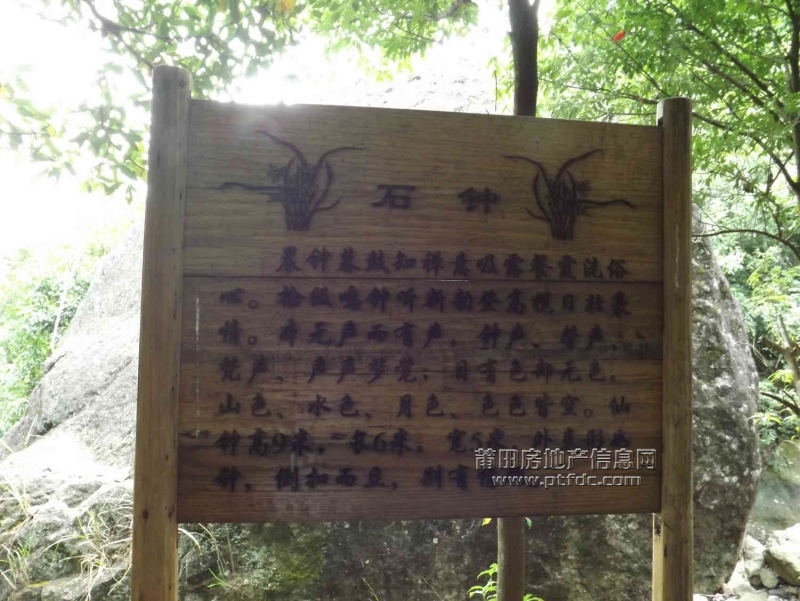 石钟
晨钟暮鼓知禅意吸露餐霞洗俗
心。拾级鸣钟听新韵登高揽日壮豪
情。寺无声而有声,钟声、磬声、
梵声、声声梦觉;目有色却无色,
山色、水色、月色、色色皆空。仙
钟高9米,长6米,宽5米,外表形如
钟,倒扣而立,别有
莆田房地产信息网
www.ptfdc.com